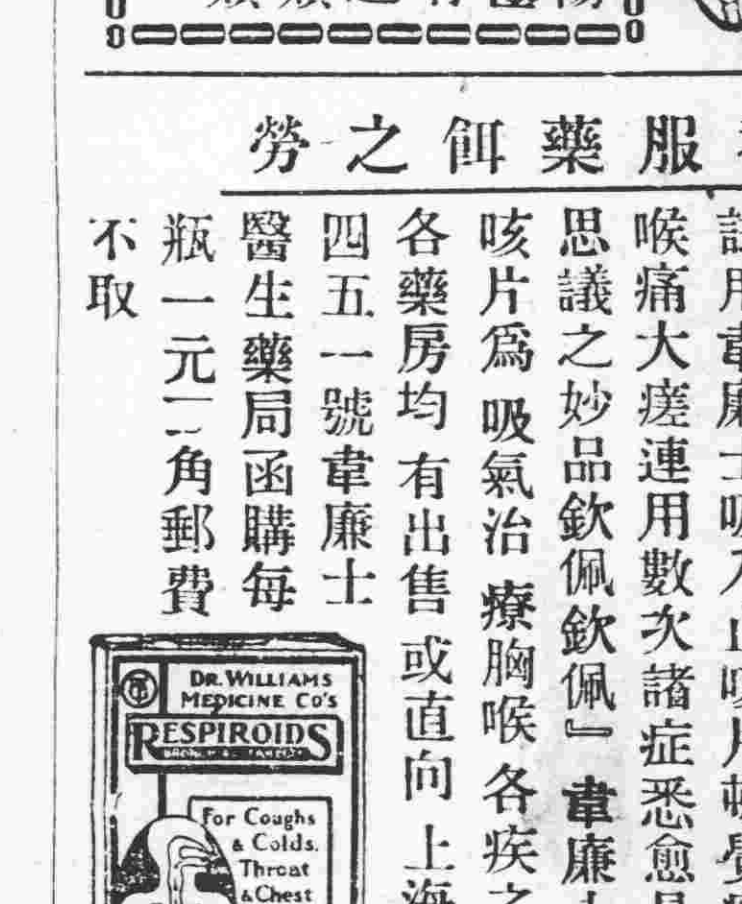 服藥餌之勞
喉痛大瘥連用數次諸症悉愈
思議之妙品欽佩欽佩』韋廉
咳片爲吸氣治療胸喉各疾之
各藥房均有出售或直向上海
四五一號韋廉士
醫生藥局函購每
瓶一元二角郵費
不取
DR. WILLIAMS
MEDICINE CO'S
RESPIROIDS
For Coughs
& Colds.
Throat
& Chest